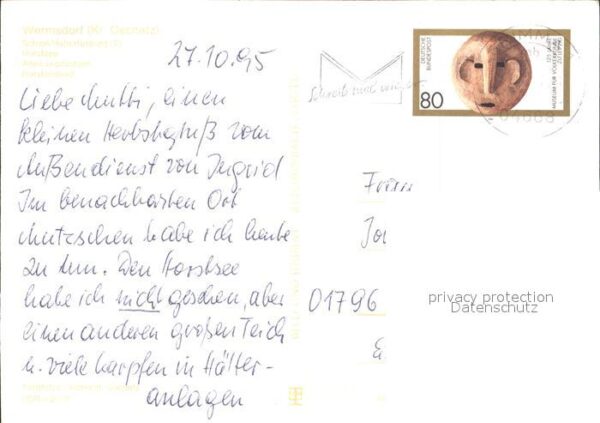 Wermsdorf (Kr. Oschatz)
27.10.95
Liebe Mutti, einen
kleinen Herbstgruß vom
Außendienst von Ingrid
Im benachbarten Ort
Mutzschen habe ich heute
zu tun. Den Horstsee
habe ich nicht gesehen, aber
einen anderen großen Teich
u. viele Karpfen in Hälter-
anlagen
DEUTSCHE
BUNDESPOST
80
125 JAHRE
MUSEUM FÜR VÖLKERKUNDE
ZU LEIPZIG
Schreib mal wieder
Frau
01796
privacy protection
Datenschutz